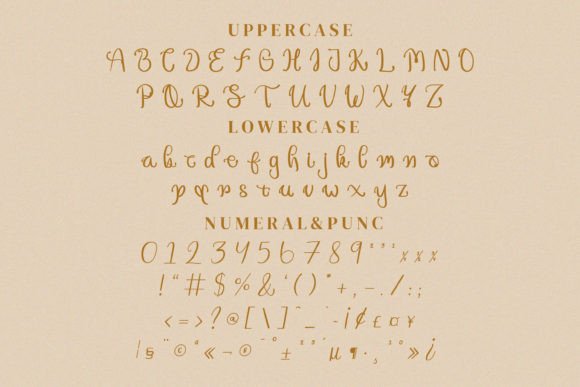 UPPERCASE
A B C D E F G H I J K L M N O
P Q R S T U V W X Y Z
LOWERCASE
a b c d e f g h i j k l m n o
p q r s t u v w x y z
NUMERAL&PUNC
0 1 2 3 4 5 6 7 8 9
! " # $ % & ' ( ) * + , - . / : ;
< = > ? @ [ \ ] ¨ _ ¨ - ¡ ¢ £ ¤ ¥
| § ¨ © ª « ¬ ® ¯ º ± ² ³ ´ µ ¶ · ¸ ¹ º » ¿